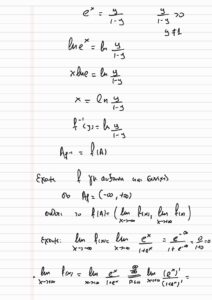 e^x = y/(1-y)    y/(1-y) > 0
y ≠ 1
ln e^x = ln y/(1-y)
x ln e = ln y/(1-y)
x = ln y/(1-y)
f^-1(y) = ln y/(1-y)
A_f^-1 = f(A)
Εχουμε f γν. αυξουσα και συνεχης
A_f = (-∞, +∞)
f(A) = (lim x→-∞ f(x), lim x→+∞ f(x))
Εχουμε: lim x→-∞ f(x) = lim x→-∞ e^x/(1+e^x) = e^-∞/(1+e^-∞) = 0/(1+0) = 0
• lim x→+∞ f(x) = lim x→+∞ e^x/(1+e^x) = lim x→+∞ (e^x)'/(1+e^x)' =